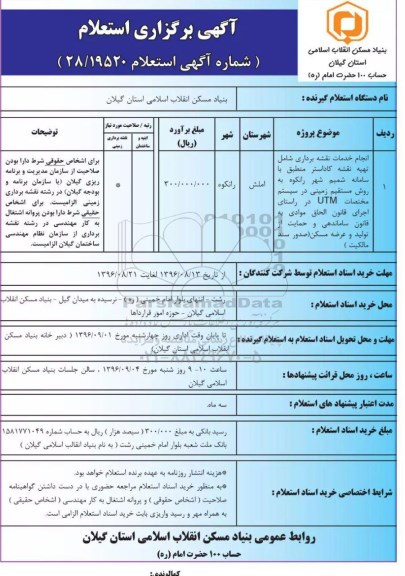 آگهی برگزاری استعلام
( شماره آگهی استعلام ۲۸/۱۹۵۲۰ )
بنیاد مسکن انقلاب اسلامی
استان گیلان
حساب ۱۰۰ حضرت امام (ره)
نام دستگاه استعلام گیرنده :
بنیاد مسکن انقلاب اسلامی استان گیلان
ردیف
موضوع پروژه
شهرستان
شهر
مبلغ برآورد
(ریال)
رتبه / صلاحیت مورد نیاز
ابنیه و ساختمان
نقشه برداری زمینی
توضیحات
۱
انجام خدمات نقشه برداری شامل
تهیه نقشه کاداستر منطبق با
سامانه شمیم شهر رانکوه به
روش مستقیم زمینی در سیستم
مختصات UTM در راستای
اجرای قانون الحاق موادی به
قانون ساماندهی و حمایت از
تولید و عرضه مسکن(صدور سند
مالکیت )
املش
رانکوه
۳۰۰/۰۰۰/۰۰۰
*
برای اشخاص حقوقی شرط دارا بودن
صلاحیت از سازمان مدیریت و برنامه
ریزی گیلان (یا سازمان برنامه و
بودجه گیلان) در رشته نقشه برداری
زمینی الزامیست. برای اشخاص
حقیقی شرط دارا بودن پروانه اشتغال
به کار مهندسی در رشته نقشه
برداری از سازمان نظام مهندسی
ساختمان گیلان الزامیست.
مهلت خرید اسناد استعلام توسط شرکت کنندگان :
از تاریخ ۱۳۹۶/۰۸/۱۳ لغایت ۱۳۹۶/۰۸/۲۱
محل خرید اسناد استعلام :
رشت - انتهای بلوار امام خمینی ( ره ) - نرسیده به میدان گیل - بنیاد مسکن انقلاب
اسلامی گیلان - حوزه امور قراردادها
مهلت و محل تحویل اسناد استعلام به استعلام گیرنده :
تا پایان وقت اداری روز چهارشنبه مورخ ۱۳۹۶/۰۹/۰۱ ( دبیر خانه بنیاد مسکن
انقلاب اسلامی گیلان)
ساعت ، روز محل قرائت پیشنهادها :
ساعت ۱۰- ۹ روز شنبه مورخ ۱۳۹۶/۰۹/۰۴ ، سالن جلسات بنیاد مسکن انقلاب
اسلامی گیلان
مدت اعتبار پیشنهاد های استعلام :
سه ماه.
مبلغ خرید اسناد استعلام :
رسید بانکی به مبلغ ۳۰۰/۰۰۰ ( سیصد هزار ) ریال به حساب شماره ۱۵۸۱۷۷۱۰۴۹
بانک ملت شعبه بلوار امام خمینی رشت ( به نام بنیاد مسکن انقلاب اسلامی گیلان )
شرایط اختصاصی خرید اسناد استعلام :
*هزینه انتشار روزنامه به عهده برنده استعلام خواهد بود.
*به منظور خرید اسناد استعلام مراجعه حضوری با در دست داشتن گواهینامه
صلاحیت ( اشخاص حقوقی ) و پروانه اشتغال به کار مهندسی ( اشخاص حقیقی )
به همراه مهر و رسید واریزی بابت خرید اسناد استعلام الزامی است.
روابط عمومی بنیاد مسکن انقلاب اسلامی استان گیلان
حساب ۱۰۰ حضرت امام (ره)